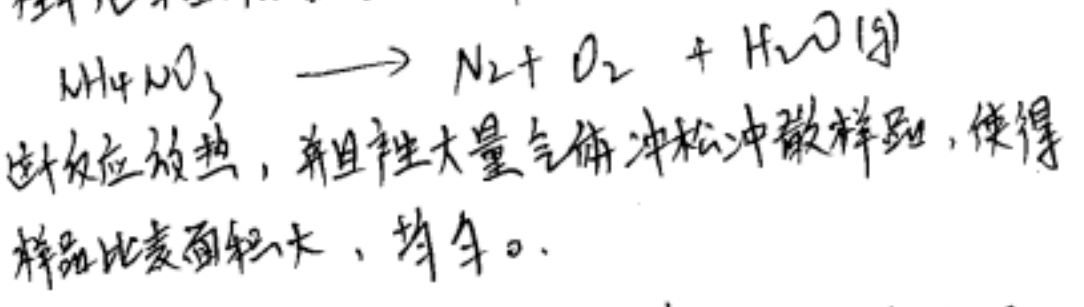 NH4NO3 ⟶ N2 + O2 + H2O(g)
此反应放热，并且产生大量气体冲松冲散样品，使得
样品比表面积大，均匀。.